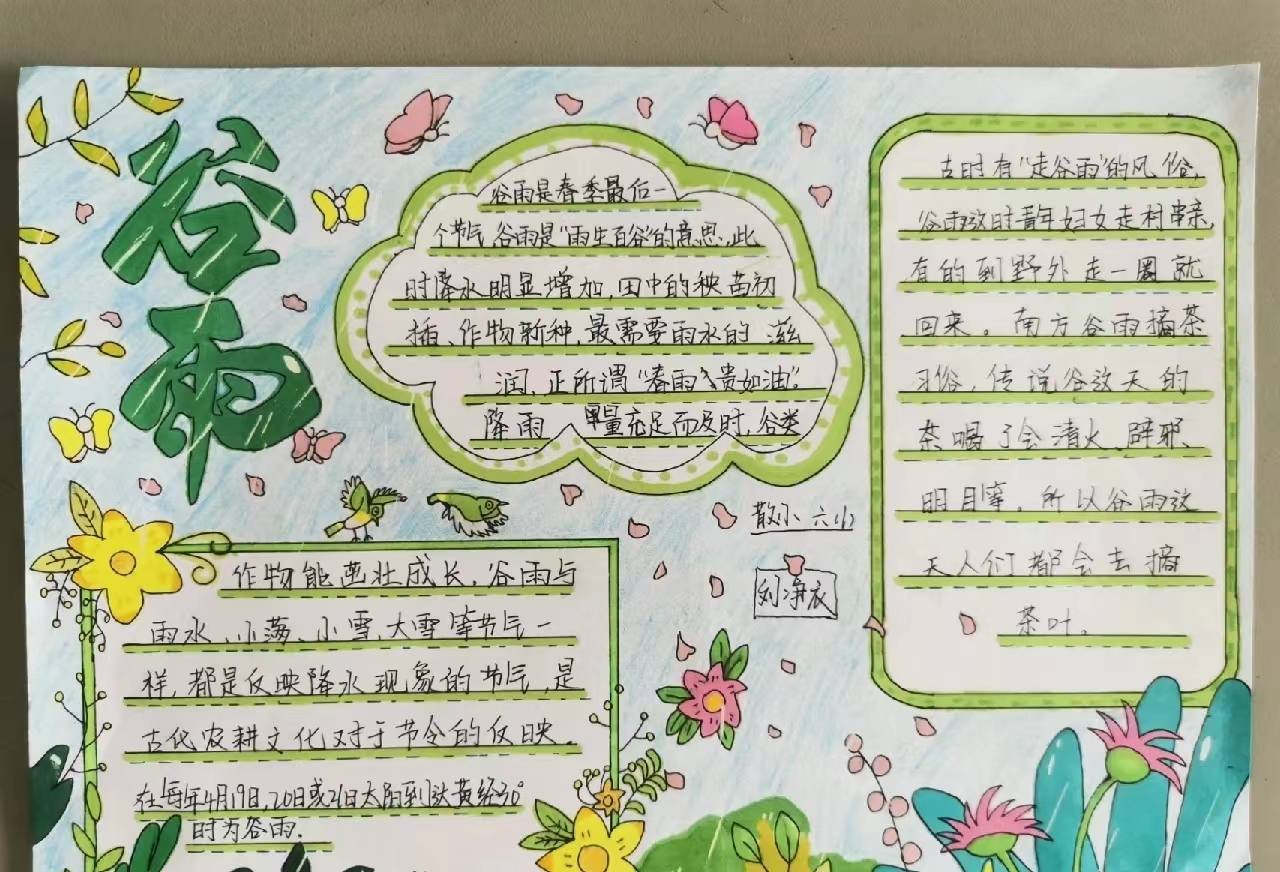 谷雨
谷雨是春季最后一
个节气谷雨是"雨生百谷"的意思,此
时降水明显增加,田中的秧苗初
插、作物新种,最需要雨水的 滋
润,正所谓"春雨贵如油"。
降雨量充足而及时,谷类
作物能茁壮成长,谷雨与
雨水、小满、小雪,大雪等节气一
样,都是反映降水现象的节气,是
古代农耕文化对于节令的反映。
在每年4月19日,20日或21日太阳到达黄经30°
时为谷雨.
古时有"走谷雨"的风俗,
谷雨这时青年妇女走村串亲,
有的到野外走一圈就
回来。南方谷雨摘茶
习俗,传说谷这天的
茶喝了会清火、辟邪、
明目等,所以谷雨这
天人们都会去摘
茶叶。
六(1)
刘净衣